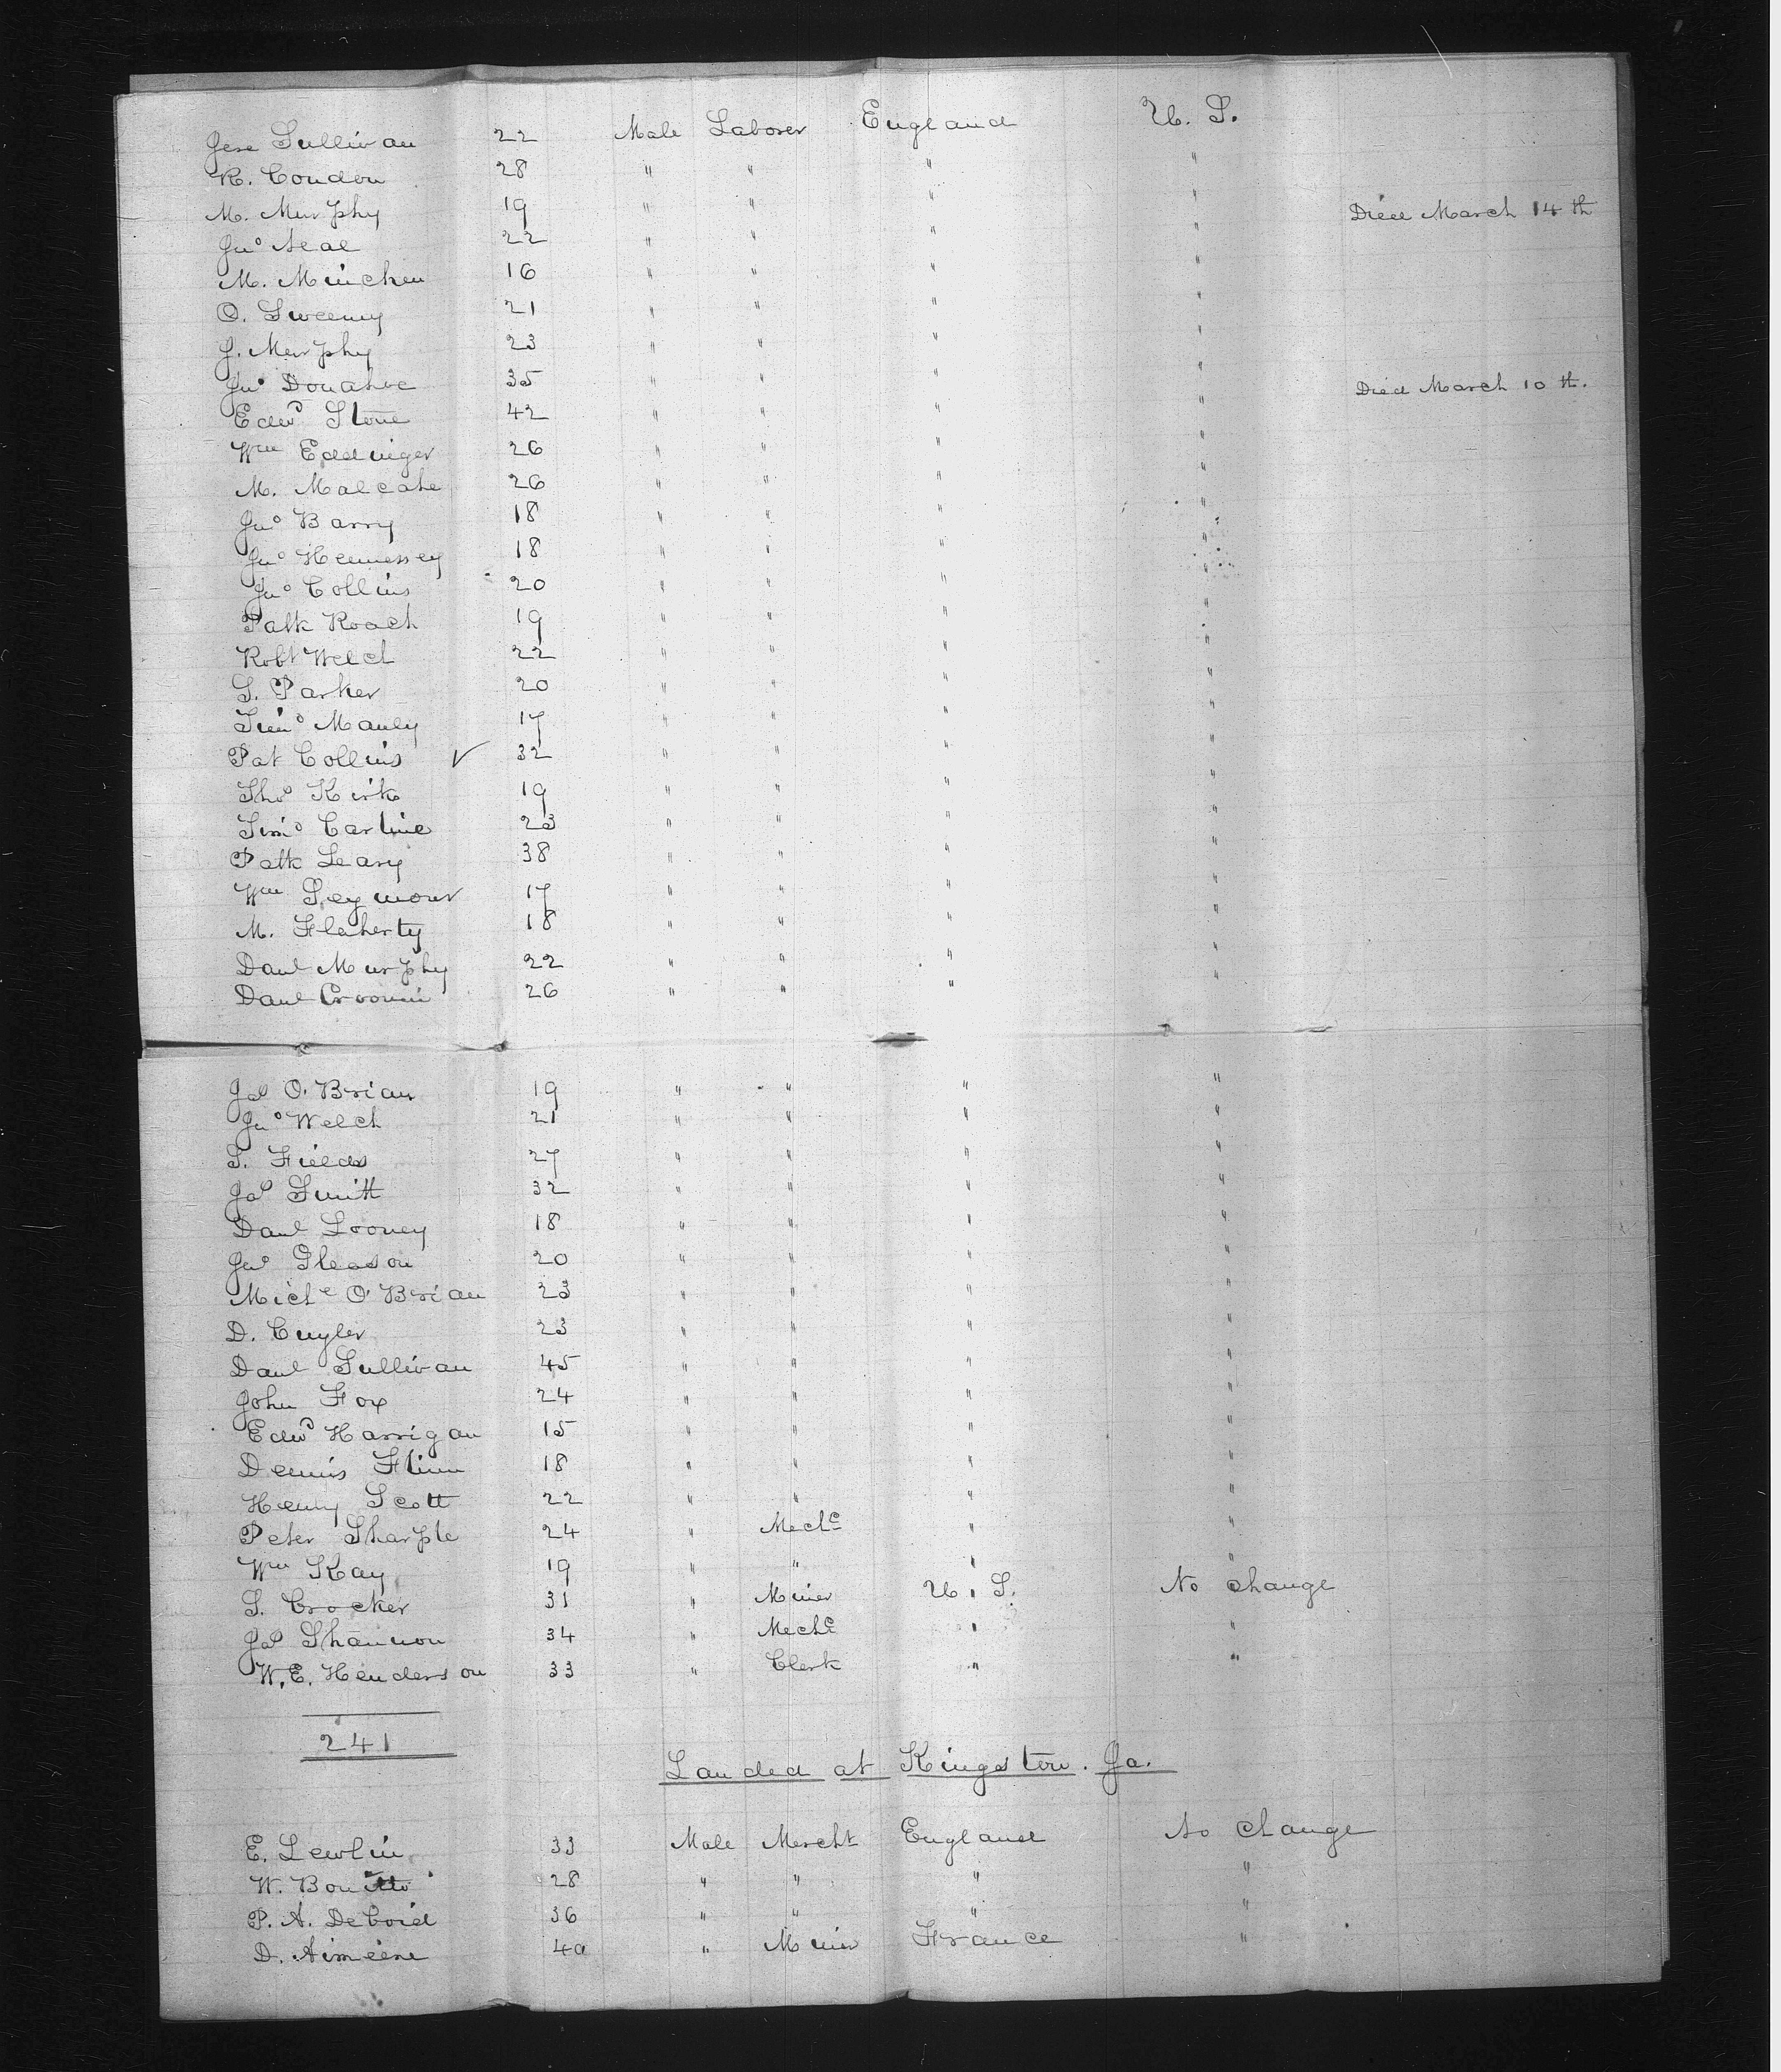 Jere Sullivan 22 Male Laborer England U. S.
R. Condon 28 " " " "
M. Murphy 19 " " " " Died March 14 th
Jno Neal 22 " " " "
M. Minchen 16 " " " "
O. Sweeny 21 " " " "
J. Murphy 23 " " " "
Jno Donahoe 35 " " " " Died March 10 th.
Edwd Stone 42 " " " "
Wm Eddinger 26 " " " "
M. Malcahe 26 " " " "
Jno Barry 18 " " " "
Jno Hennessey 18 " " " "
Jno Collins 20 " " " "
Patk Roach 19 " " " "
Robt Welch 22 " " " "
S. Parker 20 " " " "
Timo Manly 17 " " " "
Pat Collins ✓ 32 " " " "
Thos Kirk 19 " " " "
Timo Carline 23 " " " "
Patk Leary 38 " " " "
Wm Seymour 17 " " " "
M. Flaherty 18 " " " "
Danl Murphy 22 " " " "
Danl 26 " " " "
Jas O'Brian 19 " " " "
Jno Welch 21 " " " "
S. Fields 27 " " " "
Jas Smith 32 " " " "
Danl Looney 18 " " " "
Jno Gleason 20 " " " "
Miche O'Brian 23 " " " "
D. Cuyler 23 " " " "
Danl Sullivan 45 " " " "
John Fox 24 " " " "
Edwd Harrigan 15 " " " "
Dennis Flinn 18 " " " "
Henry Scott 22 " " " "
Peter Sharple 24 " Mechc " "
Wm Kay 19 " " " "
S. Crocker 31 " Miner U. S. No change
Jas Shannon 34 " Mechc " "
W. E. Henderson 33 " Clerk " "
241
Landed at Kingston. Ja.
E. Lewlin 33 Male Mercht England No change
W. 28 " " " "
P. A. DeCoid 36 " " " "
D. Aimeine 40 " Miner France "